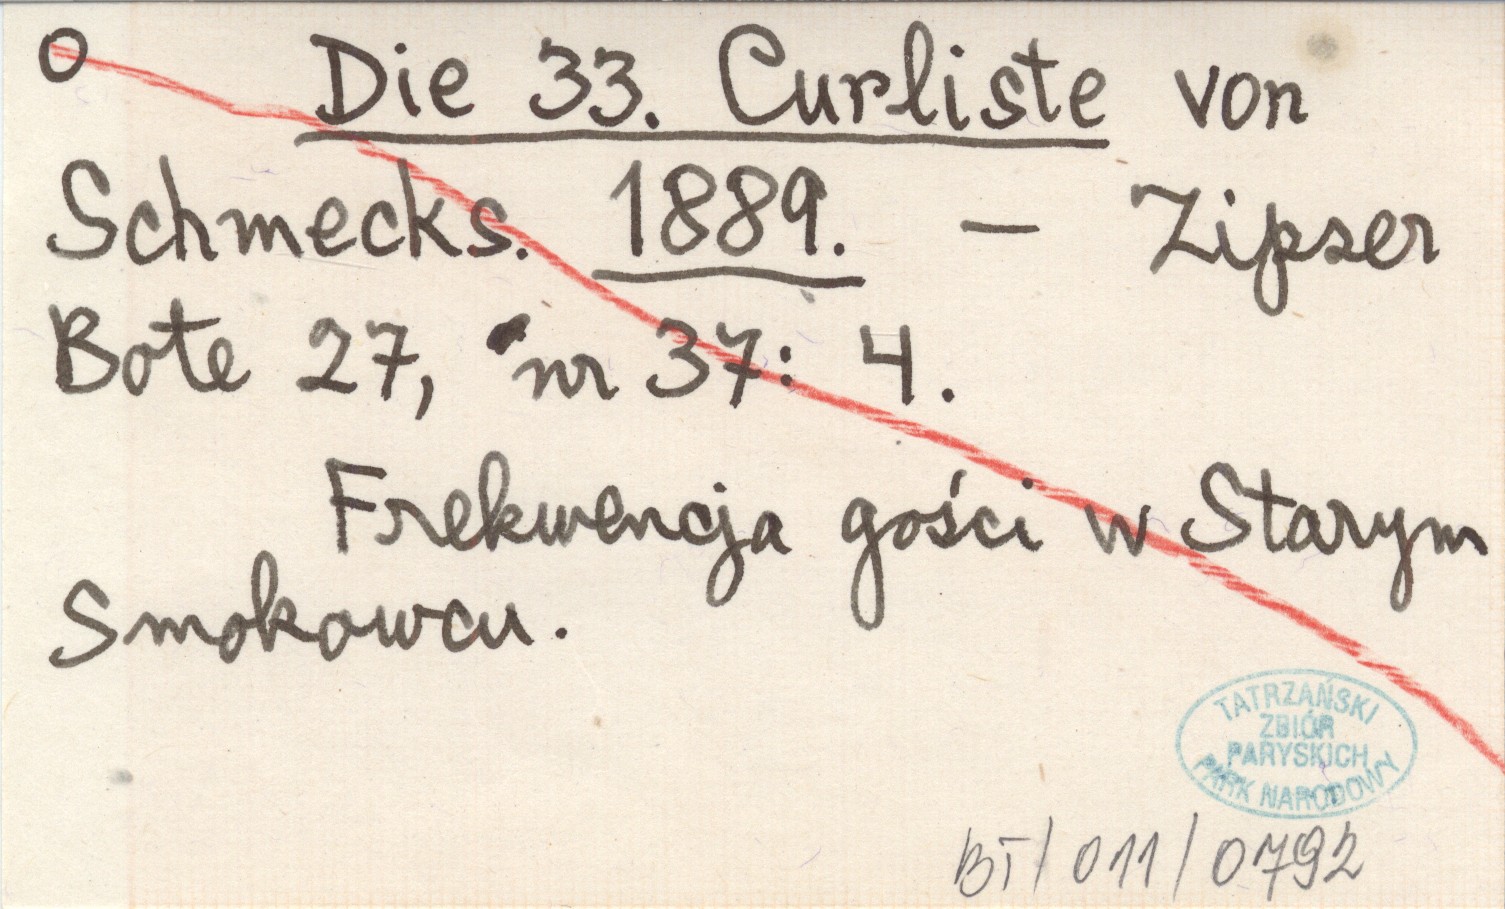 O Die 33. Curliste von
Schmecks. 1889. – Zipser
Bote 27, nr 37: 4.
Frekwencja gości w Starym
Smokowcu.
TATRZAŃSKI
ZBIÓR
PARYSKICH
PARK NARODOWY
BT/011/0792